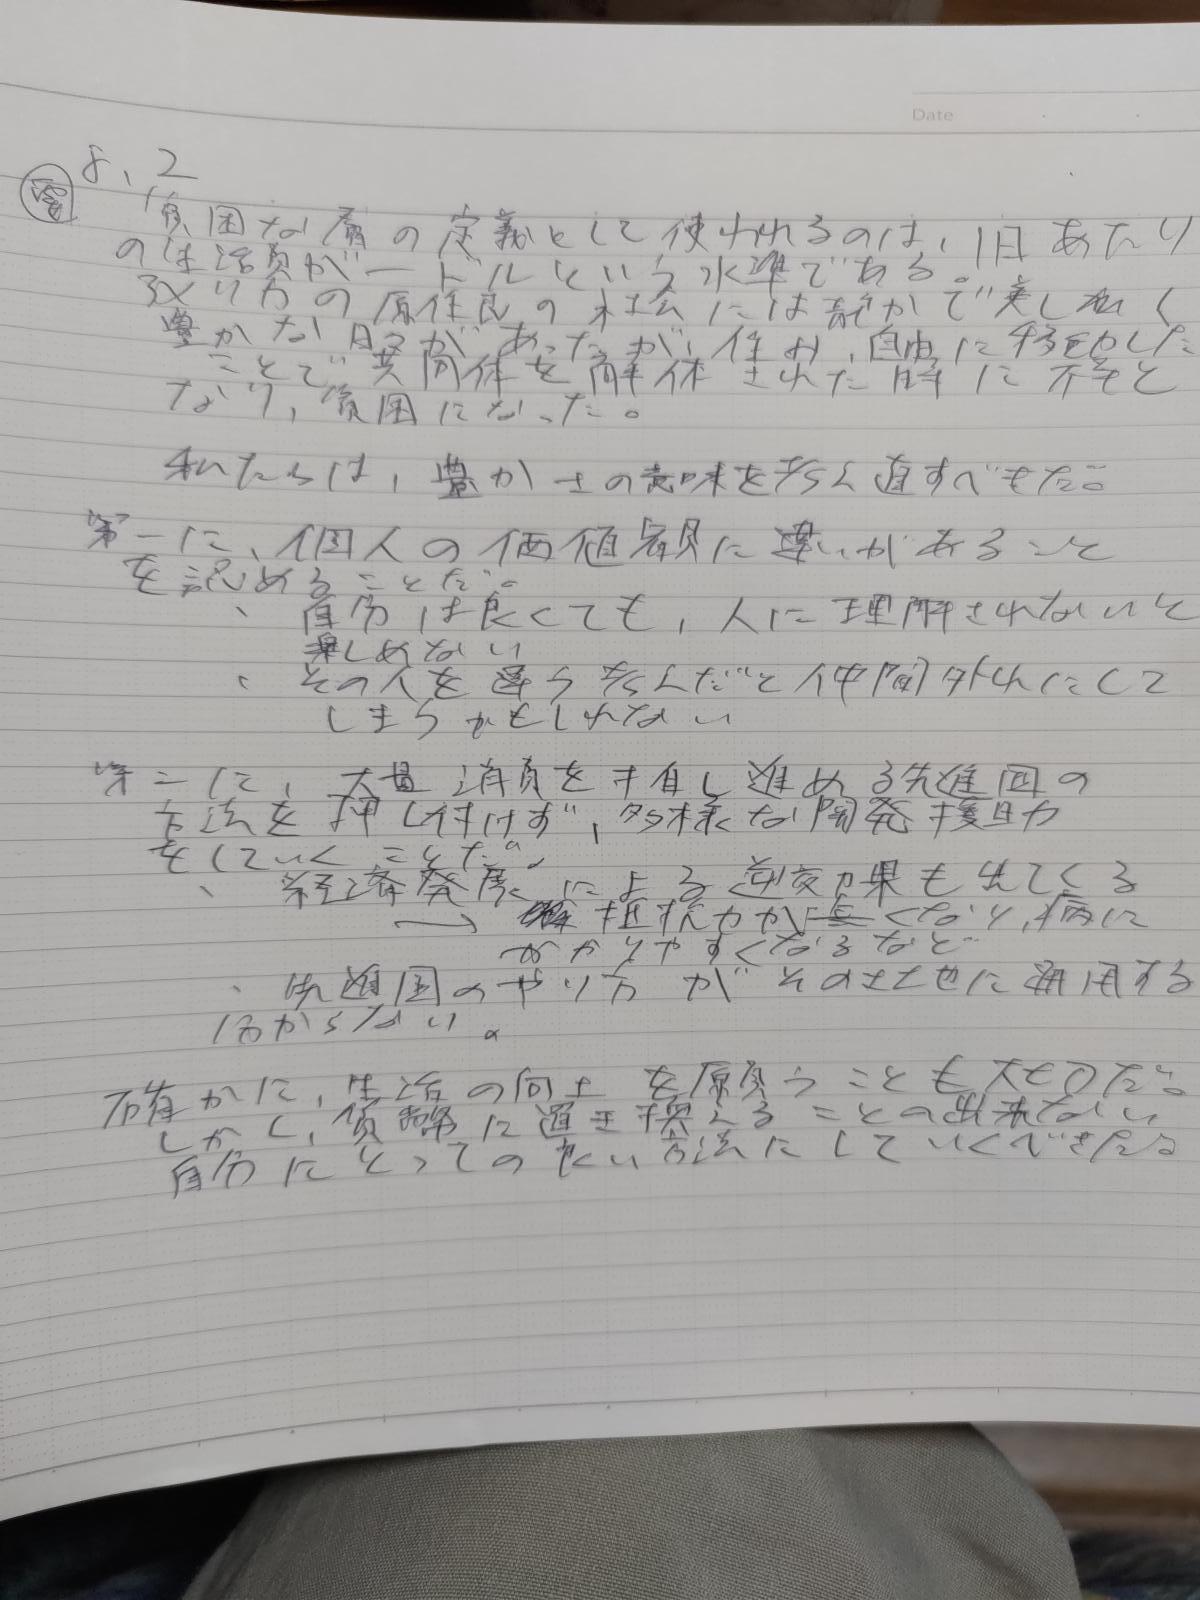 Date
8、2
貧困な層の定義として使われるのは、1日あたり
の生活費が一ドルという水準である。
の原住民の社会には静かで美しく
豊かな日々があったが、自由に移動した
ことで共同体を解体された時に不幸と
なり、貧困になった。
私たちは、豊かさの意味を考え直すべきだ。
第一に、個人の価値観に違いがあること
を認めることだ。
、自分は良くても、人に理解されないと
楽しめない
、その人を違う考えだと仲間外れにして
しまうかもしれない
第二に、大量消費を推し進める先進国の
方法を押し付けず、多様な開発援助
をしていくことだ。
、経済発展による逆効果も出てくる
→ 抵抗力がなくなり、病に
かかりやすくなるなど
、先進国のやり方がその土地に通用する
分からない。
確かに、生活の向上を願うことも大切だ。
しかし、貨幣に置き換えることの出来ない
自分にとっての良い方法にしていくべきだ。